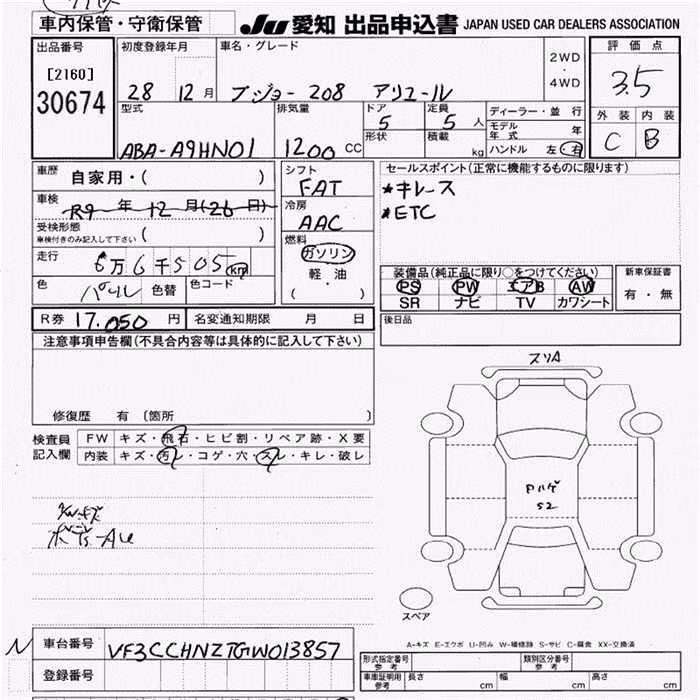 車内保管・守衛保管
JU 愛知 出品申込書 JAPAN USED CAR DEALERS ASSOCIATION
出品番号 初度登録年月 車名・グレード 2WD・4WD 評価点
[2160]
30674
28 12月 プジョー208 アリュール 3.5
型式 排気量 ドア 定員 ディーラー・並行 外装 内装
ABA-A9HN01 1200cc 5 5人 モデル年式 年 C B
形状 積載 kg ハンドル 左・右
車歴 自家用・( ) シフト セールスポイント(正常に機能するものに限ります)
FAT
車検 R9年12月(26日) 冷房 *キレース
AAC *ETC
受検形態
車検付きのみ記入して下さい ( ) 燃料
走行 6万6千505km ガソリン
軽・油
( ・ )
色 パール 色替 色コード
装備品(純正品に限り○をつけてください) 新車保証書
PS PW エアB AW 有・無
SR ナビ TV カワシート
R券 17,050円 名変通知期限 月 日 後日品
注意事項申告欄(不具合内容等は具体的に記入して下さい)
スリA
修復歴 有 (箇所 )
検査員 FW キズ・飛石・ヒビ割・リペア跡・X要
記入欄 内装 キズ・汚レ・コゲ・穴・スレ・キレ・破レ
S2
スペア
A-キズ E-エクボ U-凹み W-補修跡 S-サビ C-腐食 XX-交換済
N 車台番号 VF3CCHNZTGW013857
形式指定番号 参考 類別区分番号 参考
登録番号 車庫証明用 参考 長さ cm 幅 cm 高さ cm